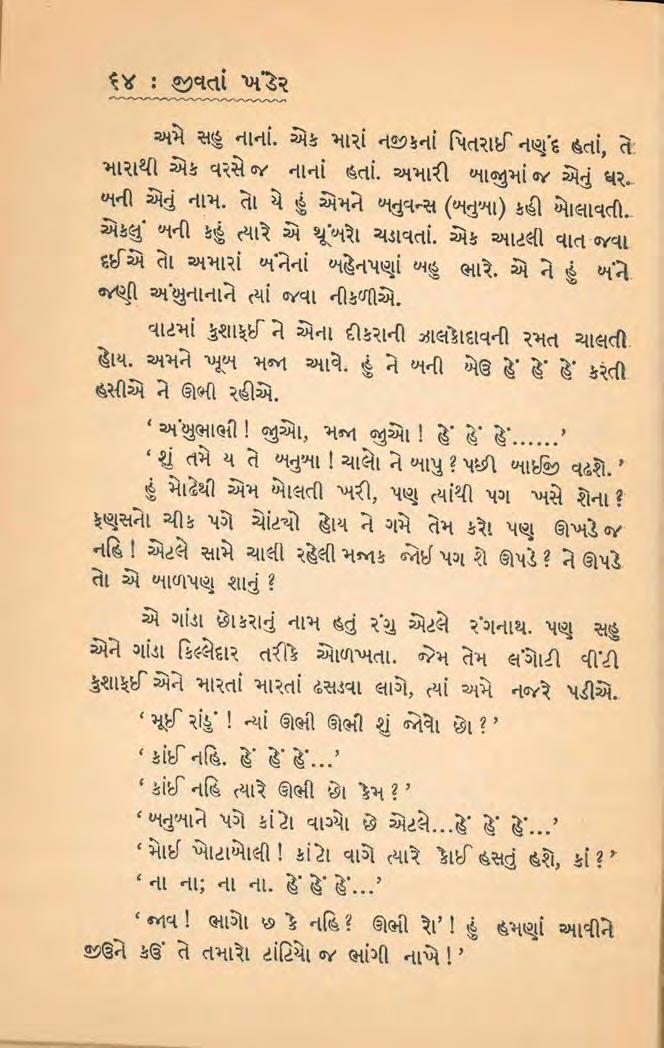 ૬૪ : જીવતાં ખંડેર
અમે સહુ નાનાં. એક મારાં નજીકનાં પિતરાઈ નણંદ હતાં, તે
મારાથી એક વરસે જ નાનાં હતાં. અમારી બાજુમાં જ એનું ઘર.
બની એનું નામ. તો યે હું એમને બનુવન્સ (બનુબા) કહી બોલાવતી.
એકલું બની કહું ત્યારે એ થૂંબરો ચડાવતાં. એક આટલી વાત જવા
દઈએ તો અમારાં બંનેનાં બહેનપણાં બહુ ભારે. એ ને હું બંને
જણી અંબુનાનાને ત્યાં જવા નીકળીએ.
વાટમાં કુશાફઈ ને એના દીકરાની ઝાલકોદાવની રમત ચાલતી
હોય. અમને ખૂબ મજા આવે. હું ને બની બેઉ હેં હેં હેં કરંતી
હસીએ ને ઊભી રહીએ.
‘ અંબુભાભી ! જુઓ, મજા જુઓ ! હેં હેં હેં......’
‘ શું તમે ય તે બનુબા ! ચાલો ને બાપુ ? પછી બાઈજી વઢશે. ’
હું મોઢેથી એમ બોલતી ખરી, પણ ત્યાંથી પગ ખસે શેના ?
ફણસનો ચીક પગે ચોંટ્યો હોય ને ગમે તેમ કરો પણ ઊખડે જ
નહિ ! એટલે સામે ચાલી રહેલી મજાક જોઈ પગ શે ઊપડે ? ને ઊપડે
તો એ બાળપણ શાનું ?
એ ગાંડા છોકરાનું નામ હતું રંગુ એટલે રંગનાથ. પણ સહુ
એને ગાંડા કિલ્લેદાર તરીકે ઓળખતા. જેમ તેમ લંગોટી વીંટી
કુશાફઈ એને મારતાં મારતાં ઢસડવા લાગે, ત્યાં અમે નજરે પડીએ.
‘ મૂઈ રાંડું ! ન્યાં ઊભી ઊભી શું જોવો છો ? ’
‘ કાંઈ નહિ. હેં હેં હેં...’
‘ કાંઈ નહિ ત્યારે ઊભી છો કેમ ? ’
‘ બનુબાને પગે કાંટો વાગ્યો છે એટલે...હેં હેં હેં...’
‘ મોઈ ખોટાબોલી ! કાંટો વાગે ત્યારે કોઈ હસતું હશે, કાં ? ’
‘ ના ના; ના ના. હેં હેં હેં...’
‘ જાવ ! ભાગો છ કે નહિ ? ઊભી રો’ ! હું હમણાં આવીને
જીઉને કઉં તે તમારો ટાંટિયો જ ભાંગી નાખે ! ’